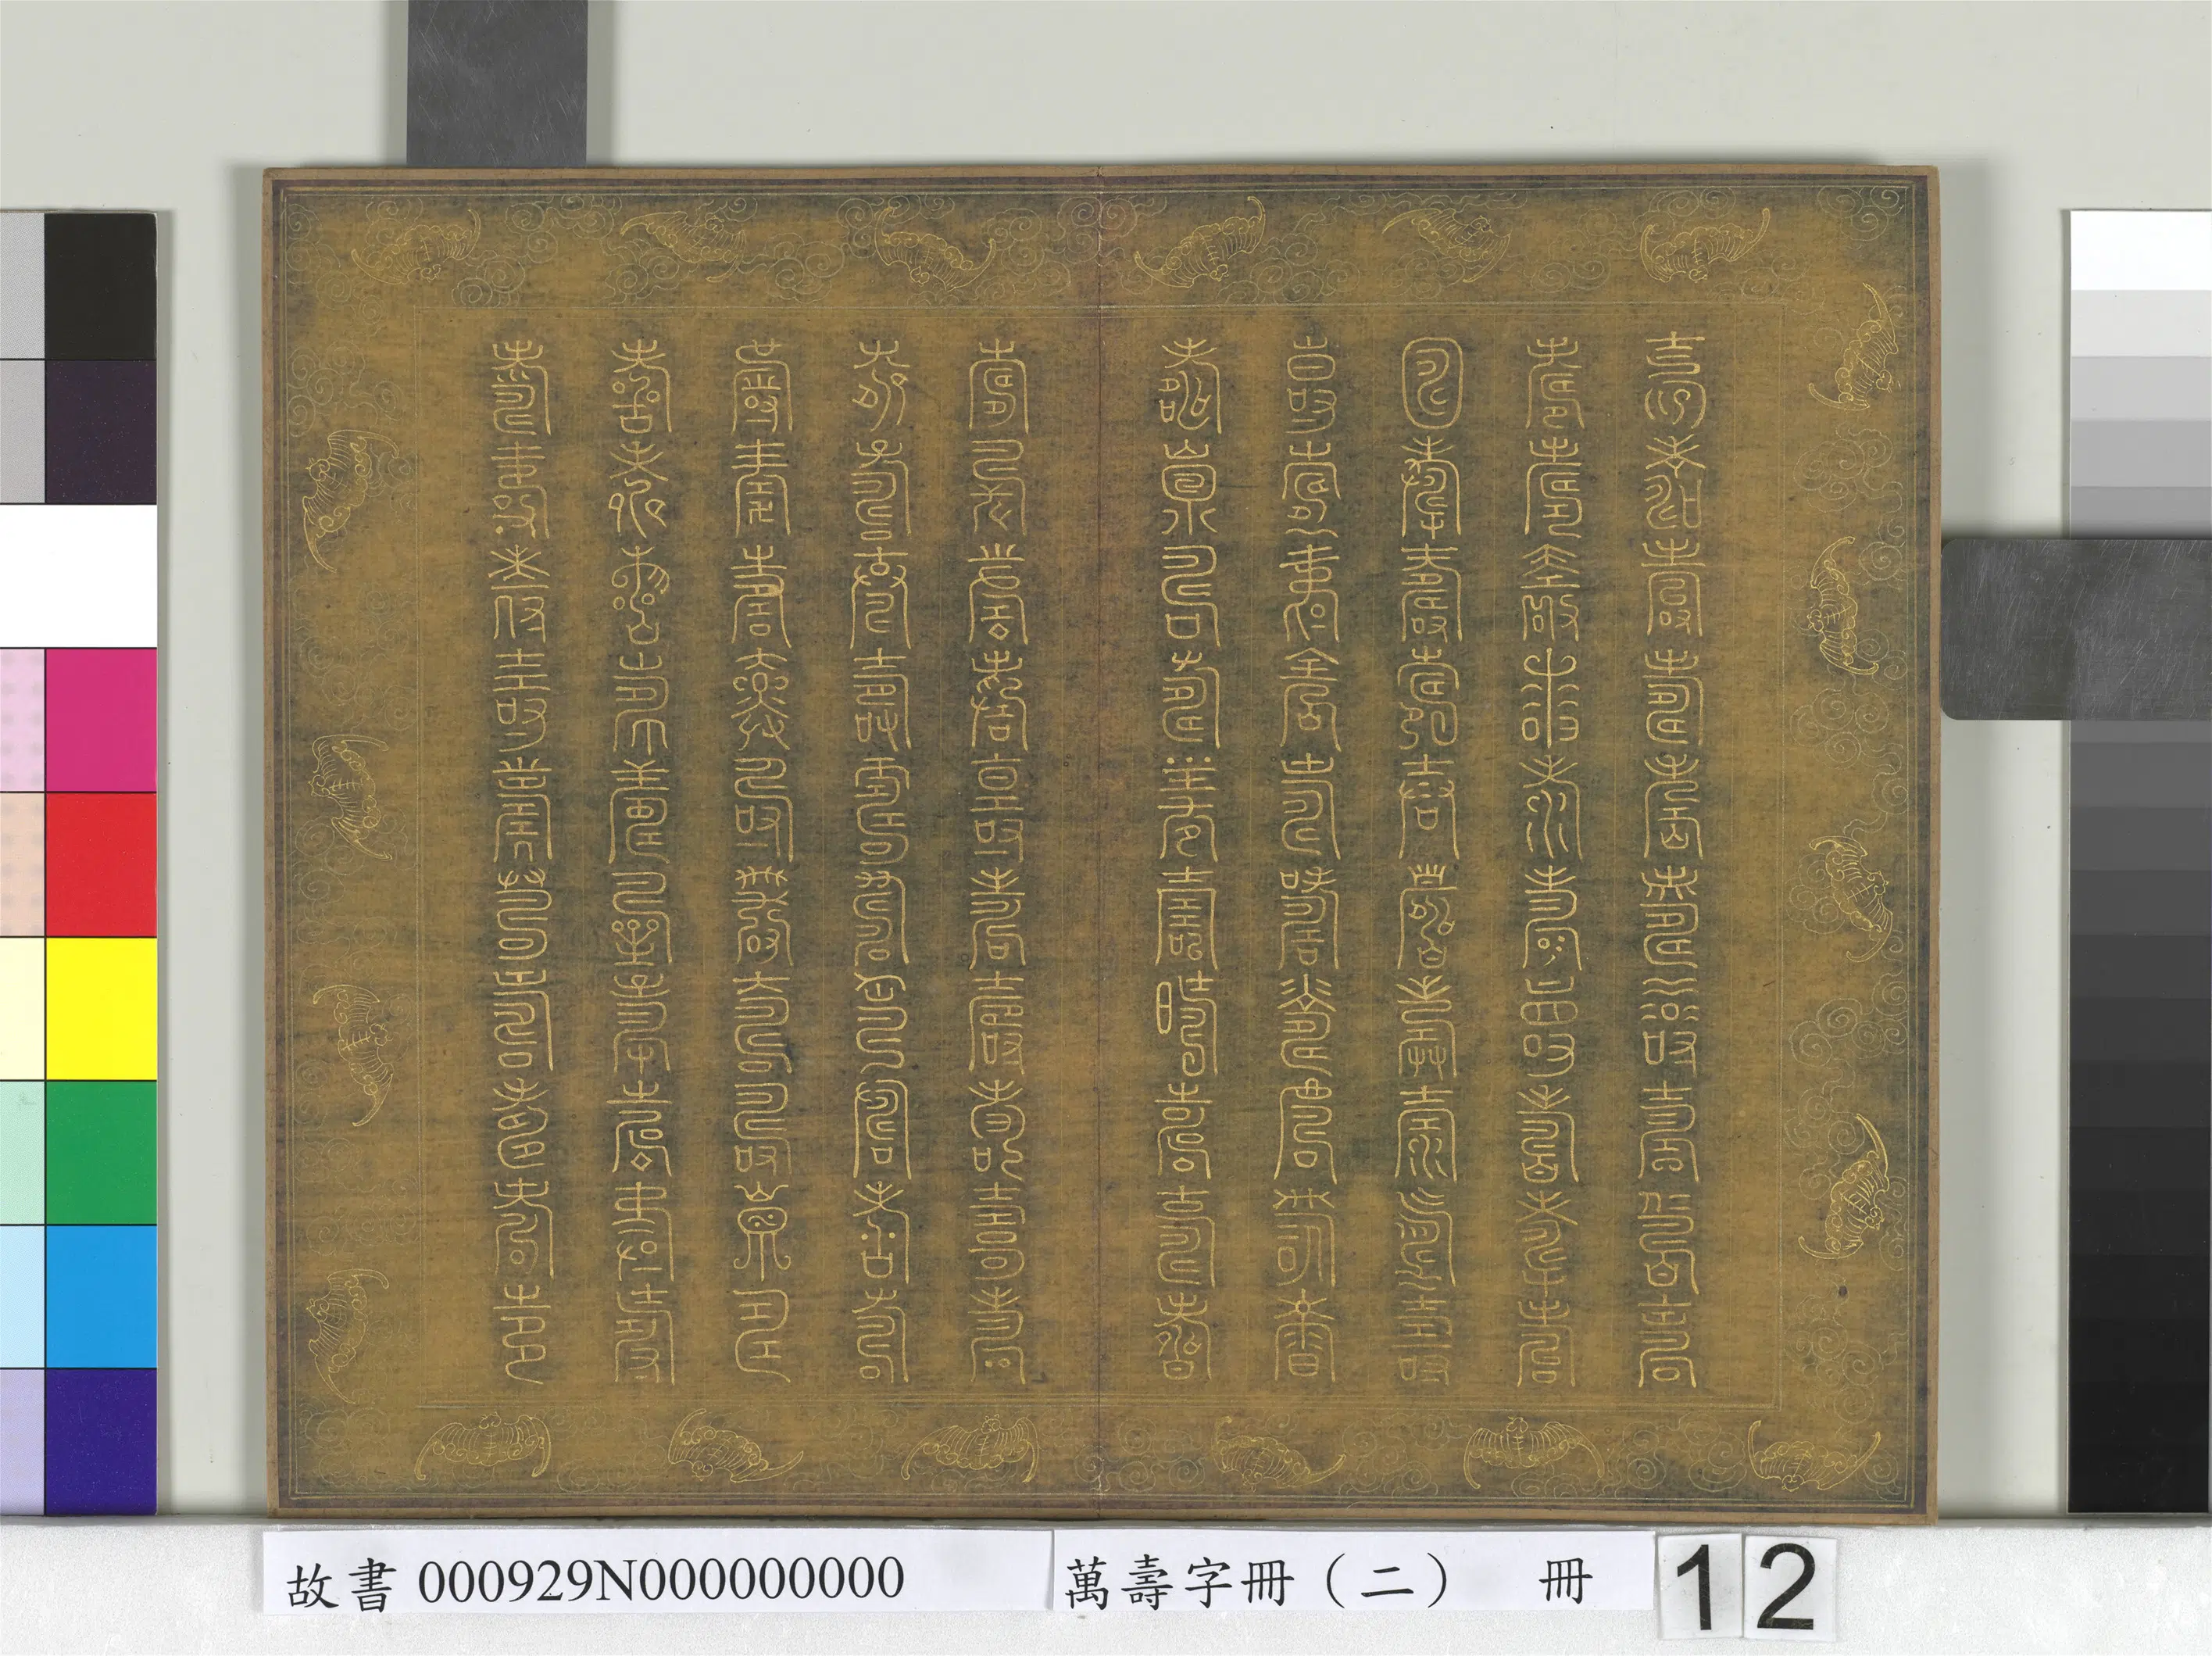 壽壽壽壽壽壽壽壽壽壽
壽壽壽壽壽壽壽壽壽壽
壽壽壽壽壽壽壽壽壽壽
壽壽壽壽壽壽壽壽壽壽
壽壽壽壽壽壽壽壽壽壽
壽壽壽壽壽壽壽壽壽壽
壽壽壽壽壽壽壽壽壽壽
壽壽壽壽壽壽壽壽壽壽
壽壽壽壽壽壽壽壽壽壽
壽壽壽壽壽壽壽壽壽壽
故書 000929N000000000 萬壽字冊（二） 冊 12